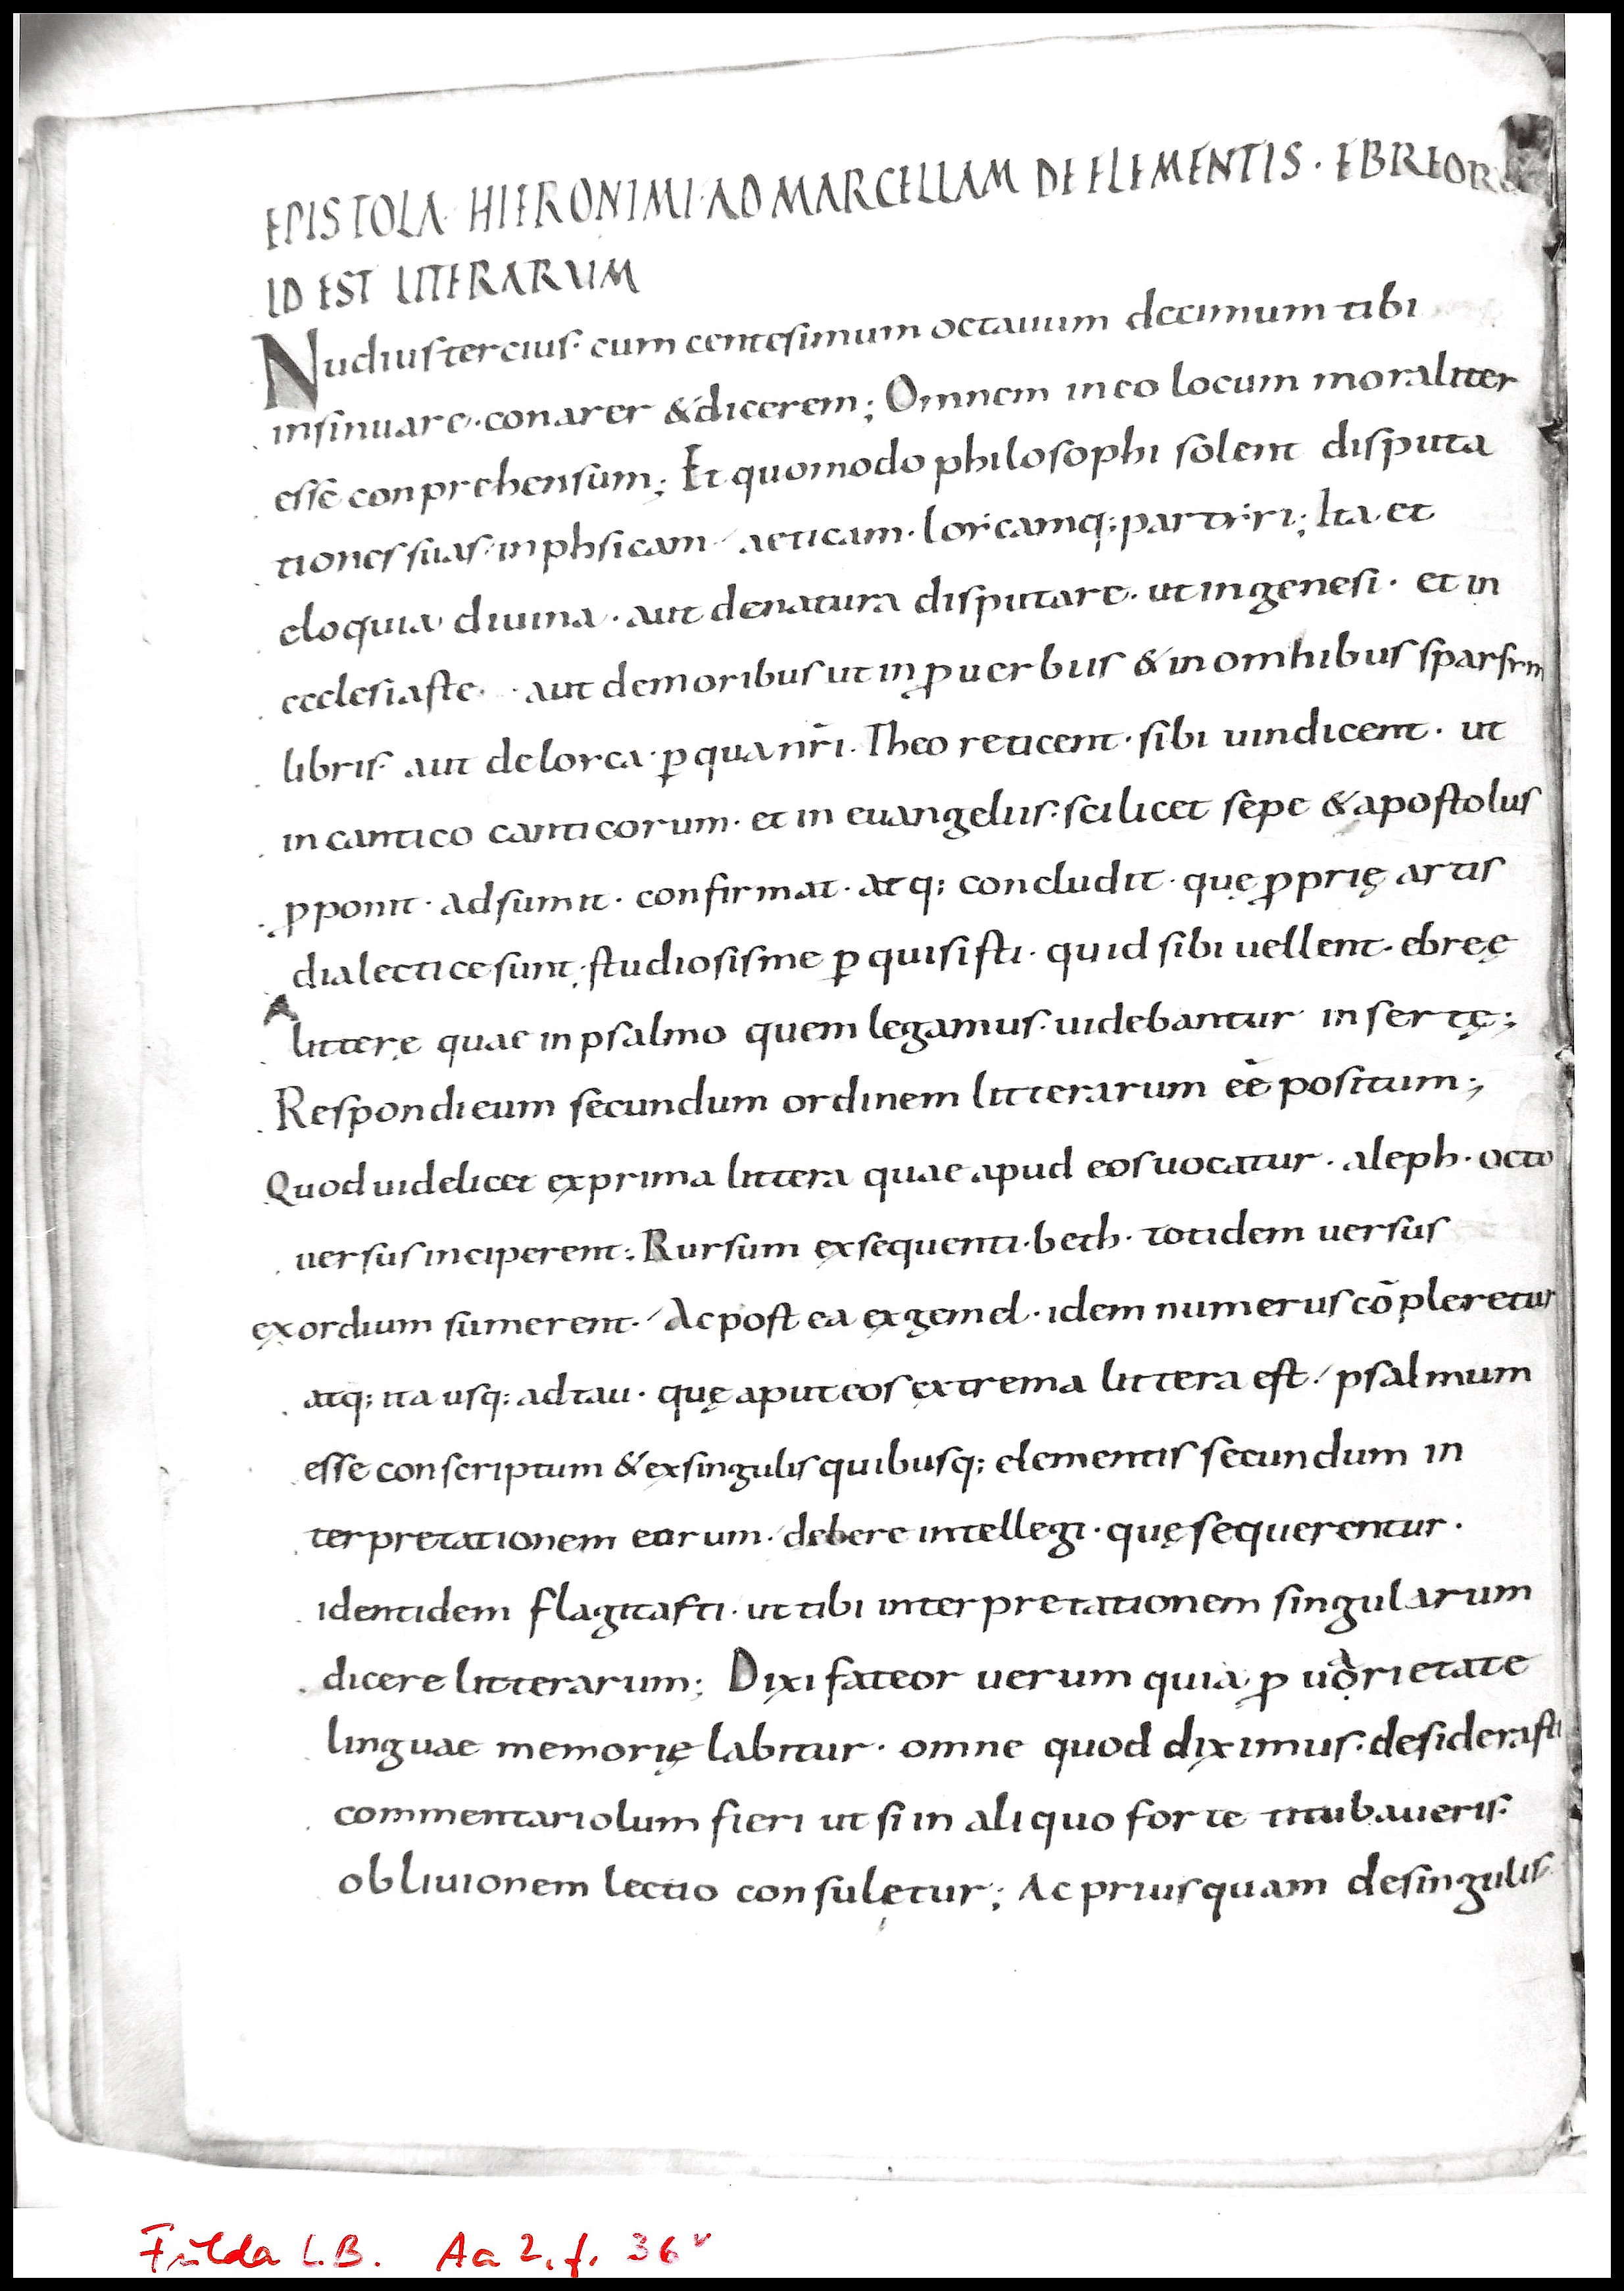 EPISTOLA· HIERONIMI·AD MARCELLAM DE ELEMENTIS· EBREOR
ID EST LITERARUM
Nudiustercius· cum centesimum octauum decimum tibi
insinuare·conarer &dicerem; Omnem ineo locum moraliter
esse conprehensum; Et quomodo philosophi solent disputa
tiones suas· inphsicam aeticam· loicamq; partiri; Ita et
eloquia diuina· aut denatura disputare· ut ingenesi· et in
ecclesiaste· aut demoribus ut in ꝓuerbiis & in omnibus sparsim
libris· aut deloica· ꝓ qua nr̄i· Theoreticent· sibi uindicent· ut
incantico canticorum· et in euangeliis· scilicet sepe & apostolus
ꝓponit· adsumit· confirmat· atq; concludit· quę ꝓprię artis
dialectice sunt; studiosisme ꝑquisisti· quid sibi uellent· ebreę
litterę quae inpsalmo quem legamus· uidebantur insertę;
Respondi eum secundum ordinem litterarum eē positum;
Quod uidelicet exprima littera quae apud eos uocatur· aleph· octo
uersus inciperent; Rursum exsequenti· beth· totidem uersus
exordium sumerent· Ac post ea exgemel· idem numerus cōpleretur
atq; ita usq; ad tau· quę aput eos extrema littera est· psalmum
esse conscriptum & exsingulis quibusq; elementis secundum in
terpretationem earum· debere intellegi· quę sequerentur·
identidem flagitasti· ut tibi interpretationem singularum
dicere litterarum; Dixi fateor uerum quia ꝓ uarietate
linguae memorię labitur· omne quod diximus· desiderasti
commentariolum fieri ut si in aliquo forte titubaueris·
obliuionem lectio consuletur; Ac priusquam desingulis
Fulda L.B. Aa 2, f. 36v